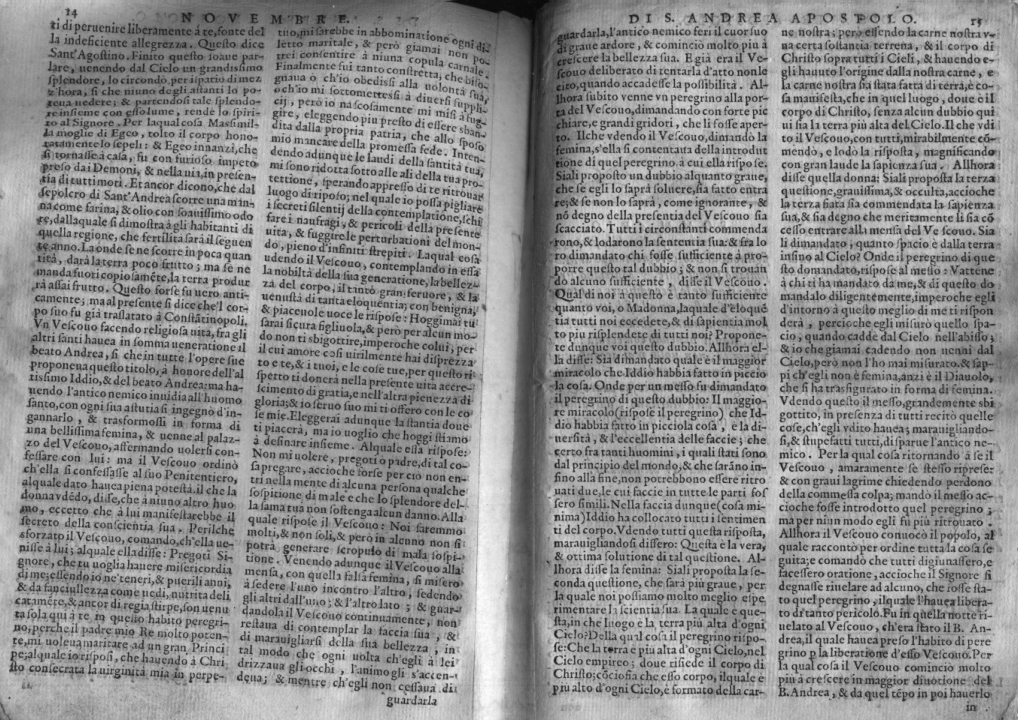 14
NOVEMBRE.
ti di peruenire liberamente à te, fonte del
la indeficiente allegrezza. Questo dice
Sant'Agostino. Finito questo soaue par-
lare, uenendo dal Cielo un grandissimo
splendore, lo circondò per ispatio di mez
z'hora, sì che niuno de gli astanti lo po-
teua uedere; & partendosi tale splendo-
re insieme con esso lume, rende lo spiri-
to al Signore. Per laqual cosa Massimil-
la moglie di Egeo, tolto il corpo hono-
ratamente lo sepelì: & Egeo innanzi, che
si tornasse à casa, fu con furioso impeto
preso da i Demoni, & nella uia, in presen-
tia di tutti morì. Et ancor dicono, che dal
sepolcro di Sant'Andrea scorre una man-
na come farina, & olio con soauissimo odo
re, dallaquale si dimostra à gli habitanti di
quella regione, che fertilità sarà il seguen
te anno. La onde se ne scorre in poca quan
tità, darà la terra poco frutto; ma se ne
manda fuori copiosamẽte, la terra produr
rà assai frutto. Questo forse fu uero anti-
camente; ma al presente si dice che'l cor-
po suo fu già traslatato à Constãtinopoli.
Vn Vescouo facendo religiosa uita, fra gli
altri santi hauea in somma ueneratione il
beato Andrea, sì che in tutte l'opere sue
proponeua questo titolo, à honore dell'al
tissimo Iddio, & del beato Andrea: ma ha-
uendo l'antico nemico inuidia all'huomo
santo, con ogni sua astutia si ingegnò d'in-
gannarlo, & trasformossi in forma di
una bellissima femina, & uenne al palaz-
zo del Vescouo, affermando uolersi con-
fessare con lui: ma il Vescouo ordinò
ch'ella si confessasse al suo Penitentiero,
alquale dato hauea piena potestà. il che la
donna vdẽdo, disse, che à niuno altro huo
mo, eccetto che à lui manifestarebbe il
secreto della conscientia sua. Perilche
sforzato il Vescouo, comandò, ch'ella ue-
nisse à lui; alquale ella disse: Pregoti Si-
gnore, che tu uoglia hauere misericordia
di me; essendo io ne' teneri, & puerili anni,
& da fanciullezza come uedi, nutrita deli
catamẽte, & ancor di regia stirpe, son uenu
ta sola qui à te, in questo habito peregri-
no, perche il padre mio Re molto poten-
te, mi uoleua maritare ad un gran Princi
pe; alquale io risposi, che hauendo à Chri
sto consecrata la uirginità mia in perpe-
tuo, mi sarebbe in abbominatione ogni di-
letto maritale, & però giamai non po-
trei consentire à niuna copula carnale.
Finalmente fui tanto constretta, che biso-
gnaua ò ch'io obedissi alla uolontà sua,
ò ch'io mi sottomettessi à diuersi suppli-
cij, però io nascosamente mi misi à fug-
gire, eleggendo piu presto di essere sban-
dita dalla propria patria, che allo sposo
mio mancare della promessa fede. Inten-
dendo adunque le laudi della santità tua,
mi sono ridotta sotto alle ali della tua pro-
tettione, sperando appresso di te ritrouar
luogo di riposo; nel quale io possa pigliare
i secreti silentij della contemplatione, schi
fare i naufragi, & pericoli della presente
uita, & fuggire le perturbationi del mon-
do, pieno d'infiniti strepiti. Laqual cosa
udendo il Vescouo, contemplando in essa
la nobiltà della sua generatione, la bellez-
za del corpo, il tanto gran feruore, & la
uenustà di tanta eloquentia; con benigna,
& piaceuole uoce le rispose: Hoggimai tu
sarai sicura figliuola, & però per alcun mo-
do non ti sbigottire, imperoche colui, per
il cui amore così uirilmente hai disprezza
to e te, & i tuoi, e le cose tue, per questo ri-
spetto ti donerà nella presente uita accre-
scimento di gratia, e nell'altra pienezza di
gloria; & io seruo suo mi ti offero con le co
se mie. Eleggerai adunque la stantia doue
ti piacerà, ma io uoglio che hoggi stiamo
à desinare insieme. Alquale essa rispose:
Non mi uolere, pregoti ò padre, di tal co-
sa pregare, accioche forse per ciò non en-
tri nella mente di alcuna persona qualche
sospitione di male e che lo splendore del-
la fama tua non sostenga alcun danno. Alla
quale rispose il Vescouo: Noi saremmo
molti, & non soli, & però in alcuno non si
potrà generare scropulo di mala sospi-
tione. Venendo adunque il Vescouo alla
mensa, con quella falsa femina, si misero
à sedere l'uno incontro l'altro, sedendo
gli altri dall'uno, & l'altro lato; & guar-
dandola il Vescouo continuamente, non
restaua di contemplar la faccia sua, &
di marauigliarsi della sua bellezza, in
tal modo che ogni uolta ch'egli à lei
drizzaua gli occhi, l'animo gli s'accen-
deua; & mentre ch'egli non cessaua di
guardarla
DI S. ANDREA APOSTOLO.
15
guardarla, l'antico nemico ferì il cuor suo
di graue ardore, & cominciò molto più à
crescere la bellezza sua. E già era il Ve-
scouo deliberato di tentarla d'atto non le
cito, quando accadesse la possibilità. Al-
lhora subito venne vn peregrino alla por-
ta del Vescouo, dimandando con forte pic
chiare, e grandi gridori, che li fosse aper-
to. Ilche vdendo il Vescouo, dimandò la
femina, s'ella si contentaua della introdut
tione di quel peregrino. à cui ella rispose.
Siali proposto un dubbio alquanto graue,
che se egli lo saprà soluere, sia fatto entra
re; & se non lo saprà, come ignorante, &
nõ degno della presentia del Vescouo sia
scacciato. Tutti i circonstanti commenda
rono, & lodarono la sententia sua: & fra lo
ro dimandato chi fosse sufficiente à pro-
porre questo tal dubbio; & non si trouan
do alcuno sufficiente, disse il Vescouo.
Qual di noi à questo è tanto sufficiente
quanto voi, o Madonna, laquale d'eloquẽ
tia tutti noi eccedete, & di sapientia mol
to piu risplendete di tutti noi? Propone-
te dunque voi questo dubbio. Allhora el-
la disse: Sia dimandato quale è il maggior
miracolo che Iddio habbia fatto in piccio
la cosa. Onde per un messo fu dimandato
il peregrino di questo dubbio: Il maggio-
re miracolo (rispose il peregrino) che Id-
dio habbia fatto in picciola cosa, è la di-
uersità, & l'eccellentia delle faccie; che
certo fra tanti huomini, i quali stati sono
dal principio del mondo, & che sarãno in-
fino alla fine, non potrebbono essere ritro
uati due, le cui faccie in tutte le parti fos
sero simili. Nella faccia dunque (cosa mi-
nima) Iddio ha collocato tutti i sentimen
ti del corpo. Vdendo tutti questa risposta,
marauigliandosi dissero: Questa è la vera,
& ottima solutione di tal questione. Al-
lhora disse la femina: Siali proposta la se-
conda questione, che sarà più graue, per
la quale noi possiamo molto meglio espe-
rimentare la scientia sua. La quale è que-
sta, in che luogo è la terra più alta d'ogni
Cielo? Della qual cosa il peregrino rispo-
se: Che la terra è piu alta d'ogni Cielo, nel
Cielo empireo; doue risiede il corpo di
Christo; cõciosia che esso corpo, ilquale è
piu alto d'ogni Cielo, è formato della car-
ne nostra; però essendo la carne nostra v-
na certa sostantia terrena, & il corpo di
Christo sopra tutti i Cieli, & hauendo e-
gli hauuto l'origine dalla nostra carne, e
la carne nostra sia stata fatta di terra, è co-
sa manifesta, che in quel luogo, doue è il
corpo di Christo, senza alcun dubbio qui
ui sia la terra più alta del Cielo. Il che vdi
to il Vescouo, con tutti, mirabilmente cõ-
mendò, e lodò la risposta, magnificando
con gran laude la sapienza sua. Allhora
disse quella donna: Siali proposta la terza
questione, grauissima, & occulta, accioche
la terza fiata sia commendata la sapienza
sua, & sia degno che meritamente li sia cõ
cesso entrare alla mensa del Vescouo. Sia
li dimandato, quanto spacio è dalla terra
insino al Cielo? Onde il peregrino di que
sto domandato, rispose al messo: Vattene
à chi ti ha mandato da me, & di questo do
mandalo diligentemente, imperoche egli
d'intorno à questo meglio di me ti rispon
derà, percioche egli misurò quello spa-
cio, quando cadde dal Cielo nell'abisso;
& io che giamai cadendo non uenni dal
Cielo, però non l'ho mai misurato. & sap-
pi ch'egli non è femina, anzi è il Diauolo,
che si ha trasfigurato in forma di femina.
Vdendo questo il messo, grandemente sbi
gottito, in presenza di tutti recitò quelle
cose, ch'egli vdito hauea; marauigliando-
si, & stupefatti tutti, disparue l'antico ne-
mico. Per la qual cosa ritornando à se il
Vescouo, amaramente se stesso riprese:
& con graui lagrime chiedendo perdono
della commessa colpa; mandò il messo ac-
cioche fosse introdotto quel peregrino;
ma per niun modo egli fu più ritrouato.
Allhora il Vescouo conuocò il popolo, al
quale raccontò per ordine tutta la cosa se
guita; e comandò che tutti digiunassero, e
facessero oratione, accioche il Signore si
degnasse riuelare ad alcuno, che fosse sta-
to quel peregrino, ilquale l'hauea libera-
to di tãto pericolo. Fu in quella notte ri-
uelato al Vescouo, ch'era stato il B. An-
drea, il quale hauea preso l'habito di pere
grino p la liberatione d'esso Vescouo. Per
la qual cosa il Vescouo cominciò molto
più à crescere in maggior diuotione del
B. Andrea, & da quel tẽpo in poi hauerlo
in